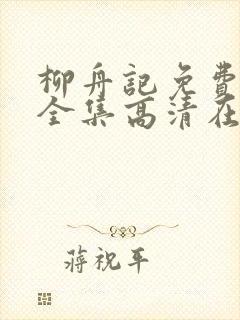 柳舟記免費
全集高清在
蔣祝平